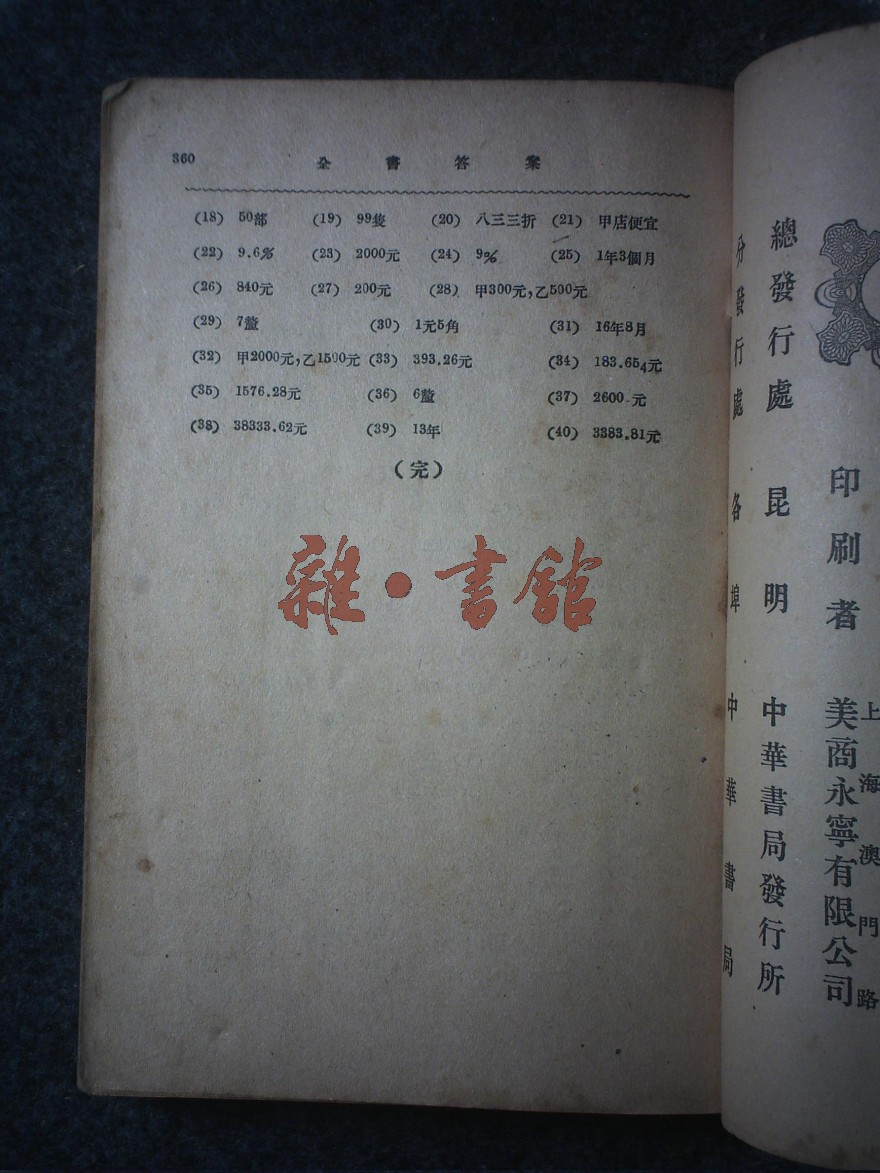 360 全書答案
(18) 50部 (19) 99隻 (20) 八三三折 (21) 甲店便宜
(22) 9.6% (23) 2000元 (24) 9% (25) 1年3個月
(26) 840元 (27) 200元 (28) 甲300元，乙500元
(29) 7釐 (30) 1元5角 (31) 16年8月
(32) 甲2000元，乙1500元 (33) 393.26元 (34) 183.654元
(35) 1576.28元 (36) 6釐 (37) 2600元
(38) 38333.62元 (39) 13年 (40) 3383.81元
(完)
雜•書館
上海澳門路
印刷者 美商永寧有限公司
總發行處 昆明 中華書局發行所
分發行處 各埠 中華書局